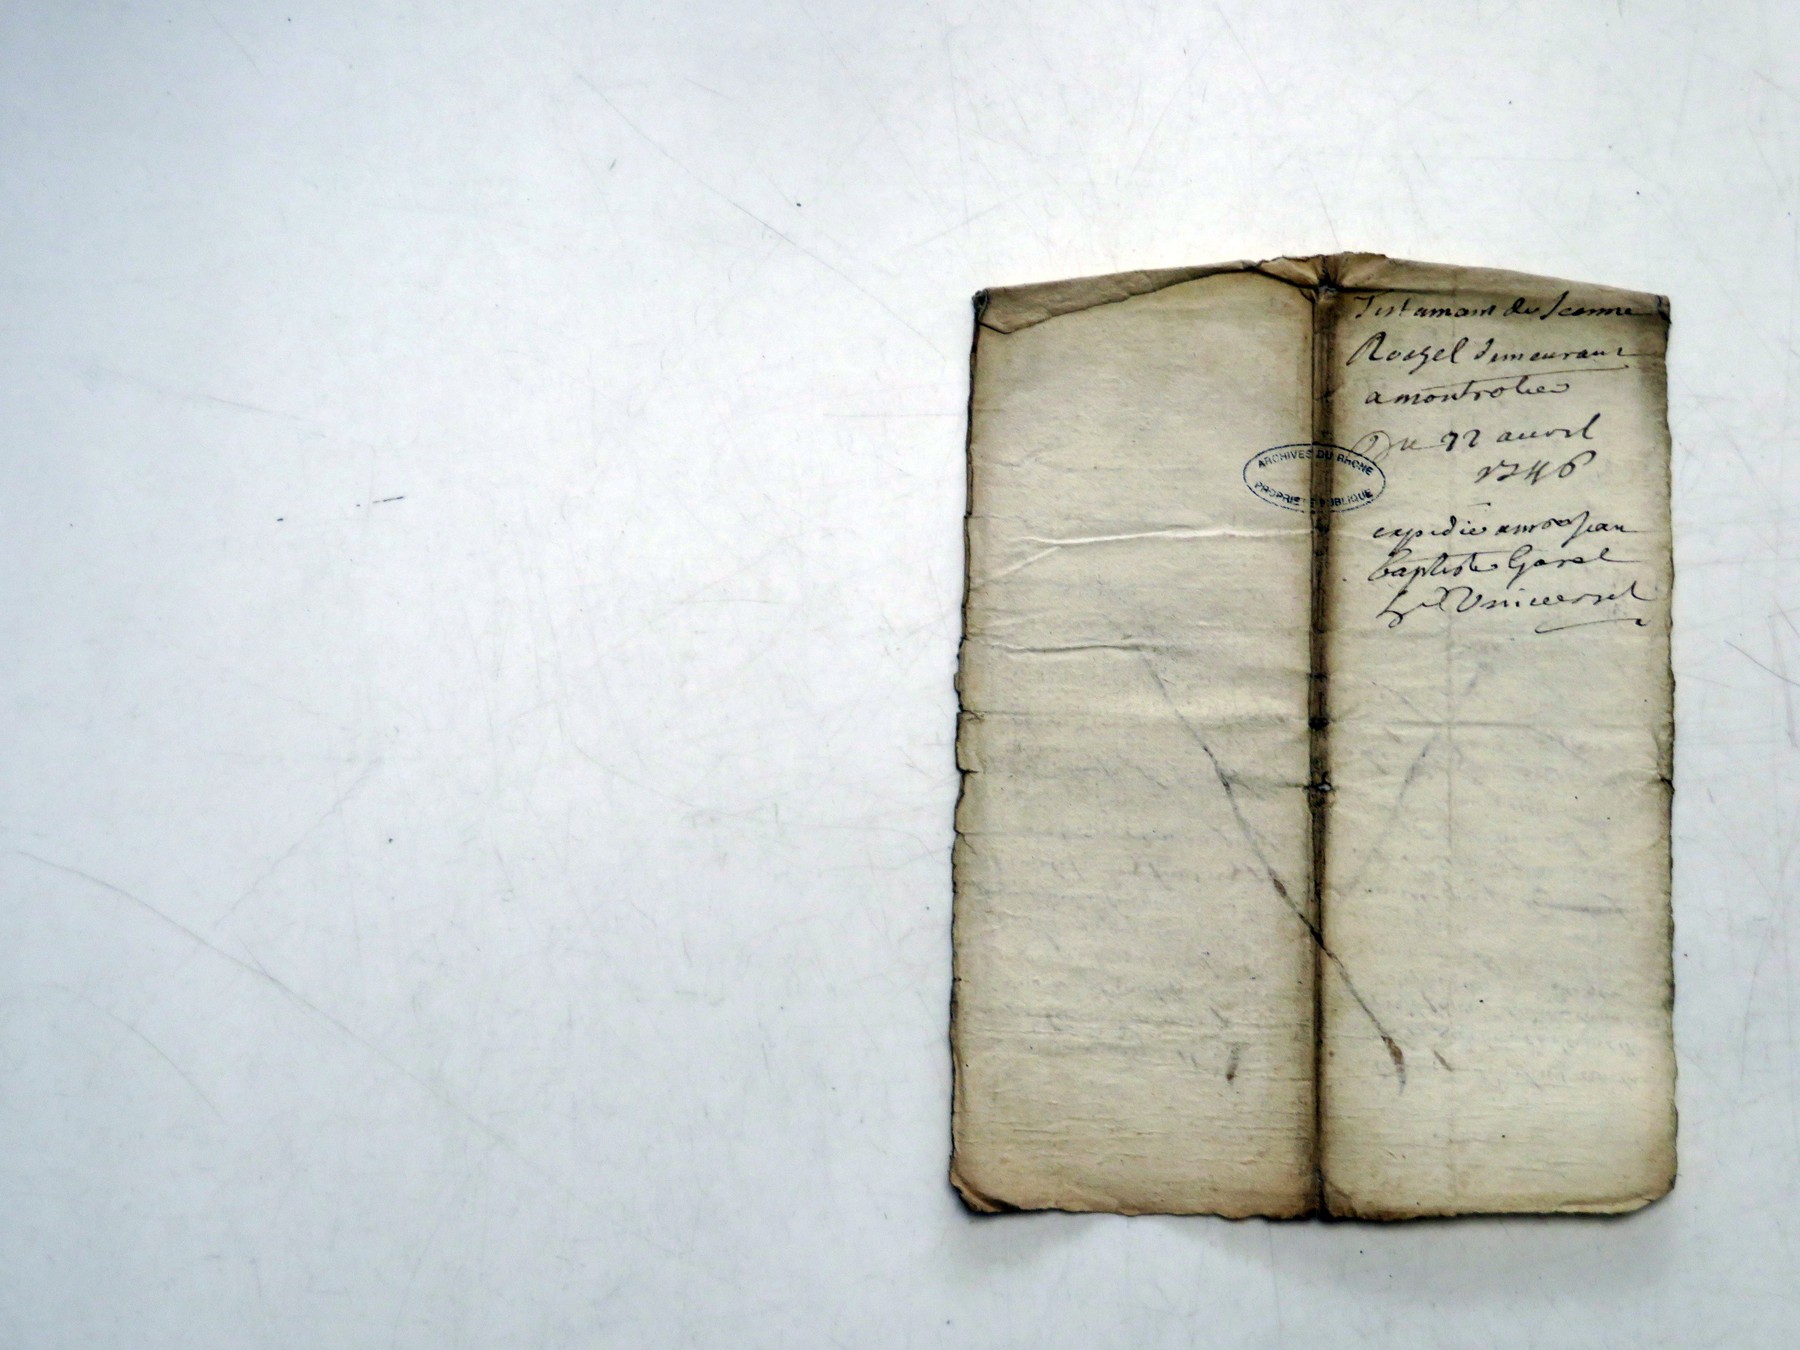 Testamant de Jeanne
Rozel demeurant
a montrotier
Du 22 auril
1746
expedié a mr Jean
baptiste Garel
her Vniuersel
ARCHIVES DU RHONE
PROPRIETE PUBLIQUE